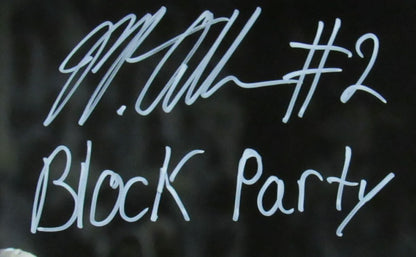 #2
Block Party